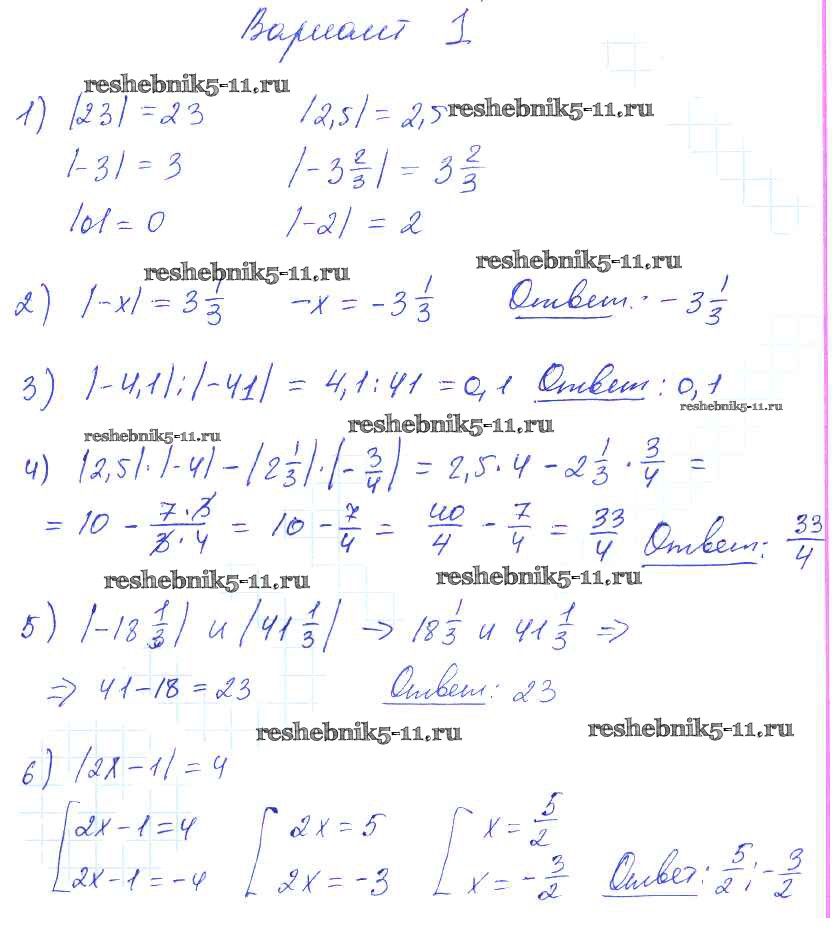 Вариант 1
reshebnik5-11.ru
1) |23| = 23 |2,5| = 2,5 reshebnik5-11.ru
|-3| = 3 |-3 2/3| = 3 2/3
|0| = 0 |-2| = 2
reshebnik5-11.ru reshebnik5-11.ru
2) |-x| = 3 1/3 -x = -3 1/3 Ответ: -3 1/3
3) |-4,1| : |-41| = 4,1 : 41 = 0,1 Ответ: 0,1
reshebnik5-11.ru
reshebnik5-11.ru reshebnik5-11.ru
4) |2,5| · |-4| - |2 1/3| · |-3/4| = 2,5 · 4 - 2 1/3 · 3/4 =
= 10 - 7·3/3·4 = 10 - 7/4 = 40/4 - 7/4 = 33/4 Ответ: 33/4
reshebnik5-11.ru reshebnik5-11.ru
5) |-18 1/3| и |41 1/3| → 18 1/3 и 41 1/3 ⇒
⇒ 41-18 = 23 Ответ: 23
reshebnik5-11.ru reshebnik5-11.ru
6) |2x-1| = 4
[2x-1=4 [2x=5 [x=5/2
2x-1=-4 2x=-3 x=-3/2 Ответ: 5/2; -3/2